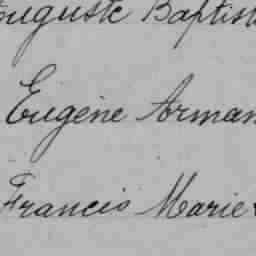 Auguste Baptist
Eugène Arman
Francis Marie